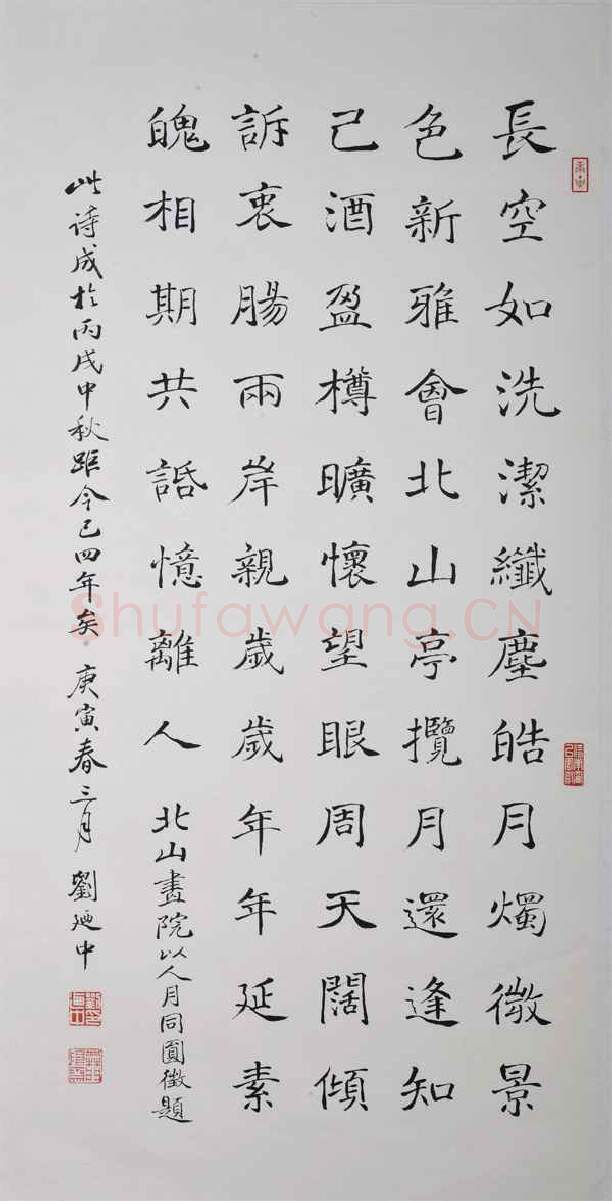 長空如洗潔纖塵皓月燭微景
色新雅會北山亭攬月還逢知
己酒盈樽曠懷望眼周天闊傾
訴衷腸兩岸親歲歲年年延素
魄相期共話憶離人
北山畫院以人月同圓徵題
此诗成於丙戌中秋距今已四年矣 庚寅春三月 劉廼中
Shufawang.CN